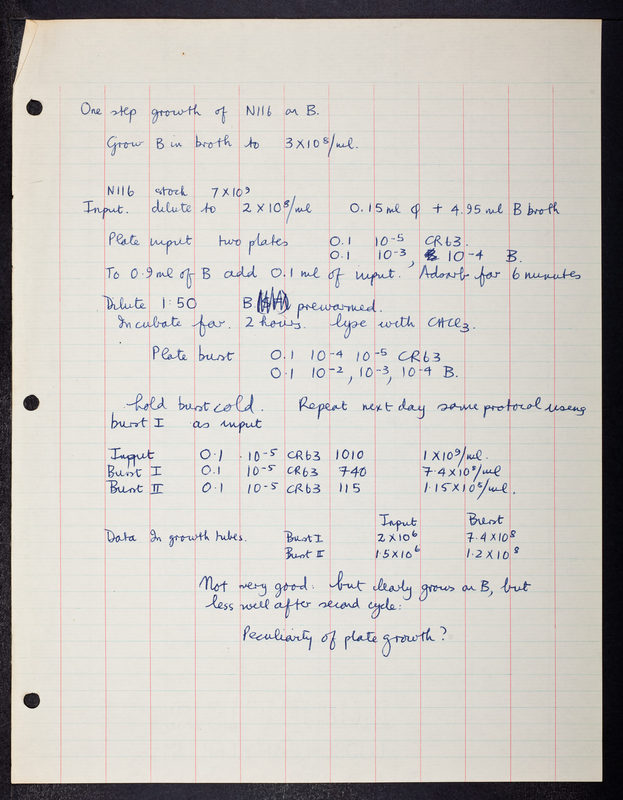 One step growth of N116 on B.
Grow B in broth to 3×10⁸/ml.
N116 stock 7×10⁹
Input. dilute to 2×10⁸/ml 0.15 ml φ + 4.95 ml B broth
Plate input two plates 0.1 10⁻⁵ CR63.
0.1 10⁻³, 10⁻⁴ B.
To 0.9 ml of B add 0.1 ml of input. Adsorb for 6 minutes
Dilute 1:50 B prewarmed.
Incubate for 2 hours. lyse with CHCl₃.
Plate burst 0.1 10⁻⁴ 10⁻⁵ CR63
0.1 10⁻², 10⁻³, 10⁻⁴ B.
hold burst cold. Repeat next day same protocol using
burst I as input
Input 0.1 10⁻⁵ CR63 1010 1×10⁹/ml.
Burst I 0.1 10⁻⁵ CR63 740 7.4×10⁸/ml
Burst II 0.1 10⁻⁵ CR63 115 1.15×10⁸/ml.
Input Burst
Data In growth tubes. Burst I 2×10⁶ 7.4×10⁸
Burst II 1.5×10⁶ 1.2×10⁸
Not very good. but clearly grows on B, but
less well after second cycle.
Peculiarity of plate growth?